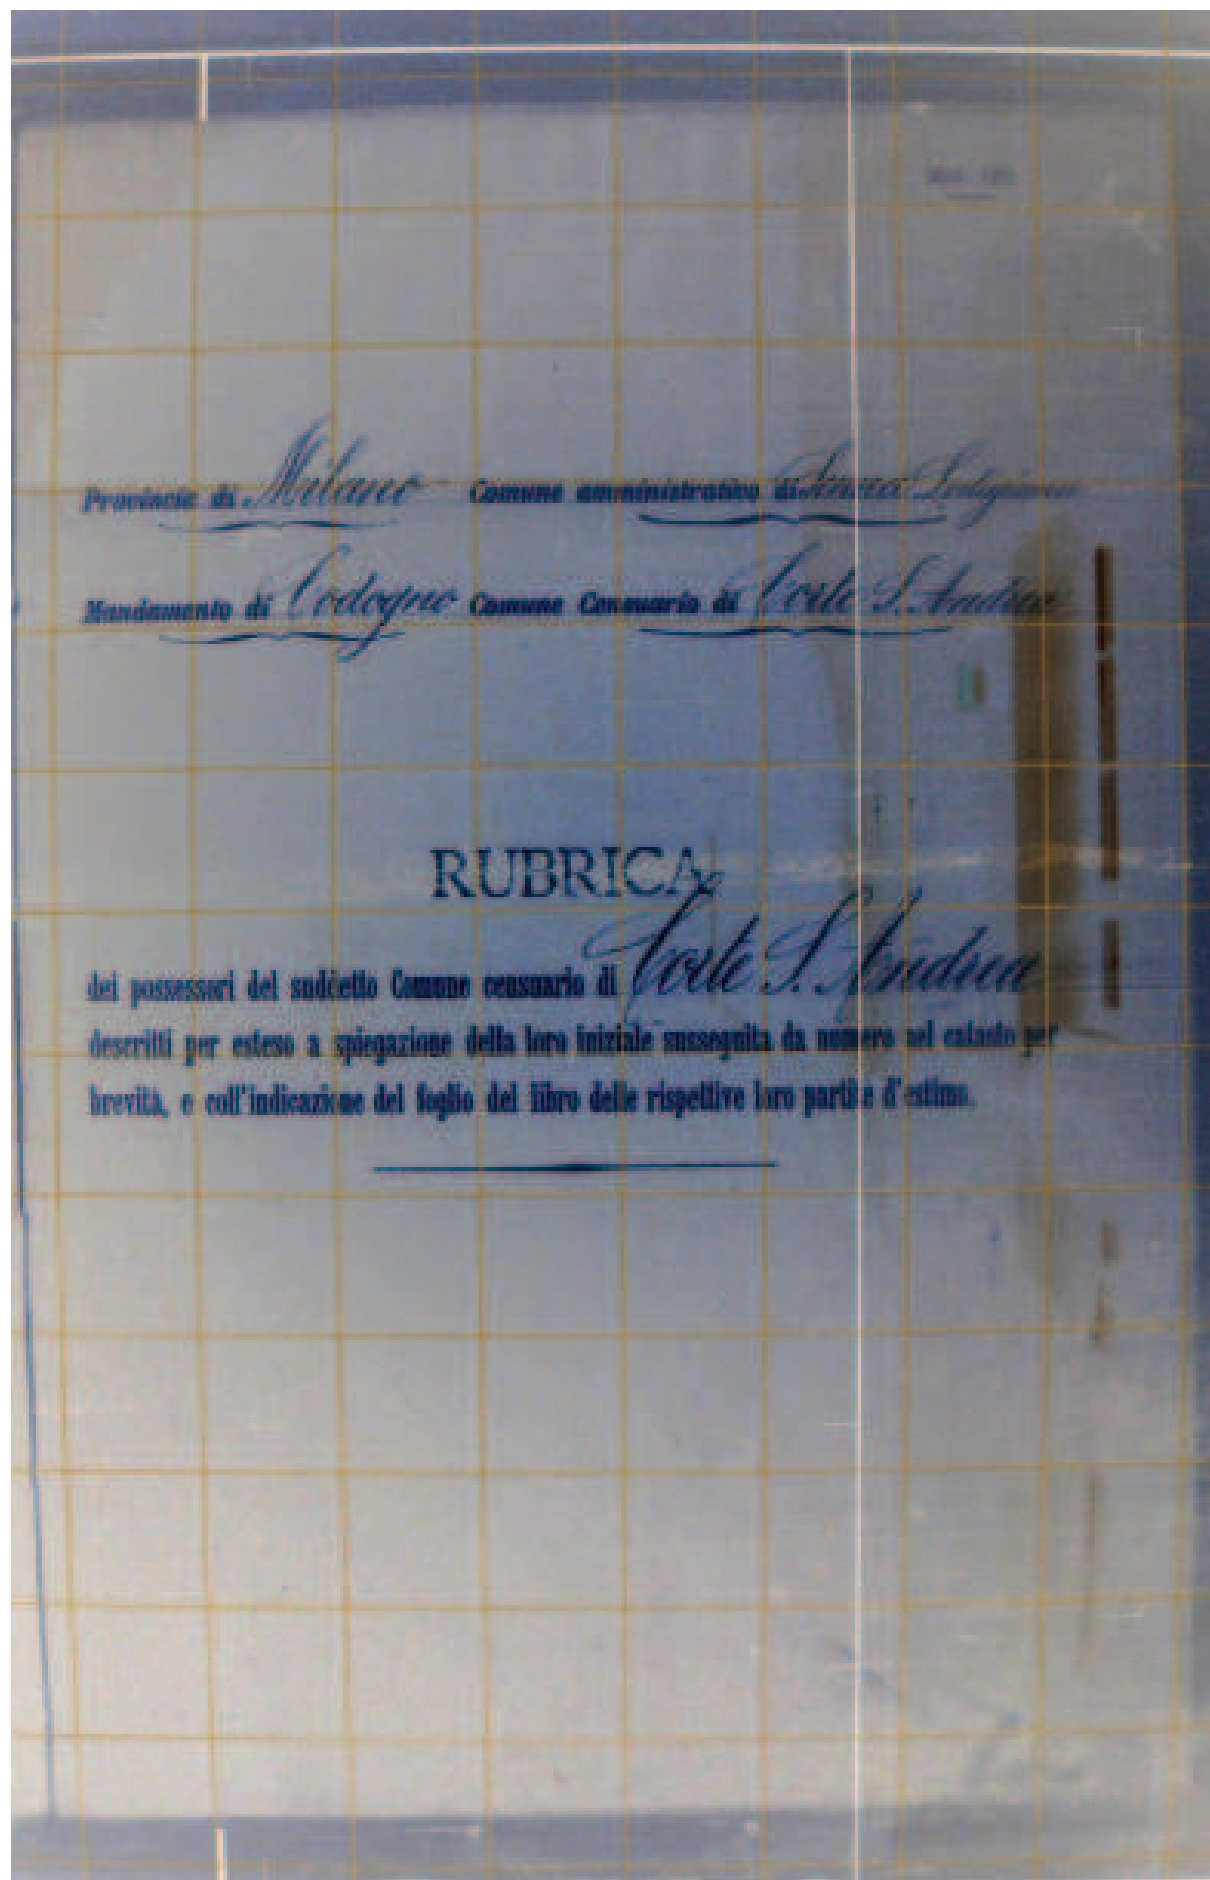 Provincia di Milano Comune amministrativo di Senna Lodigiana
Mandamento di Codogno Comune Censuario di Corte S. Andrea
RUBRICA
dei possessori del suddetto Comune censuario di Corte S. Andrea
descritti per esteso a spiegazione della loro iniziale susseguita da numero nel catasto per
brevità, e coll'indicazione del foglio del libro delle rispettive loro partite d'estimo.